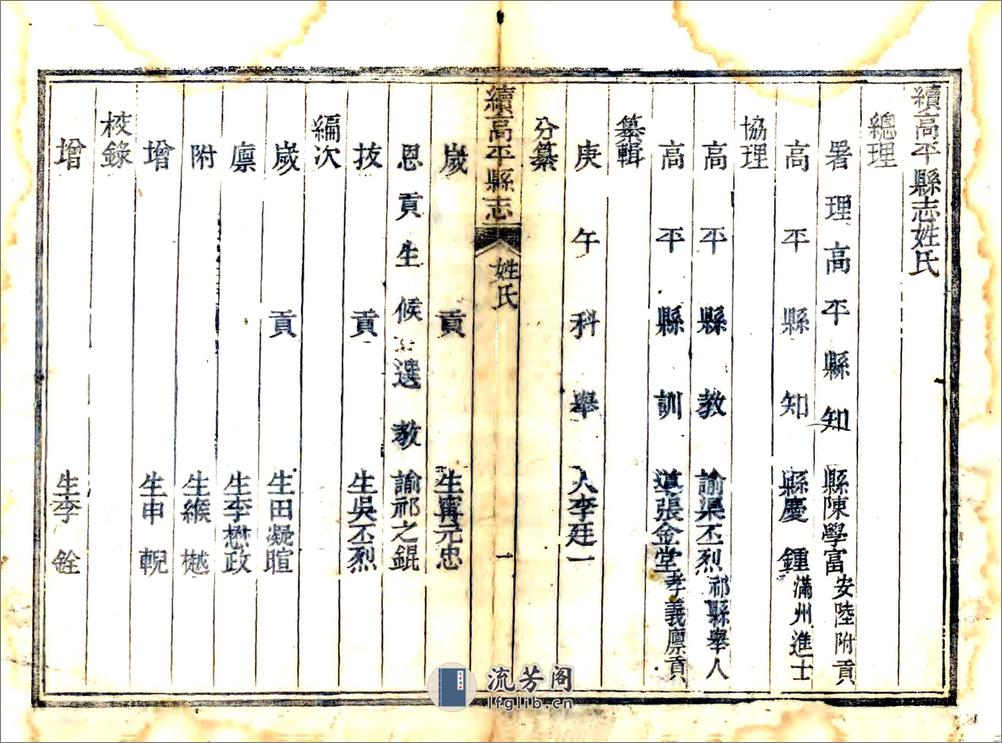 續高平縣志姓氏
總理
署理高平縣知縣陳學富安陸附貢
高平縣知縣慶鍾滿州進士
協理
高平縣教諭渠丕烈祁縣舉人
高平縣訓導張金堂孝義廩貢
纂輯
庚午科舉人李廷一
分纂
續高平縣志
姓氏
一
歲貢生甯元忠
恩貢生候選教諭祁之錕
拔貢生吳丕烈
編次
歲貢生田凝暄
廩生李懋政
附生緱樾
增生申輗
校錄
增生李銓
流芳阁
lfglib.cn